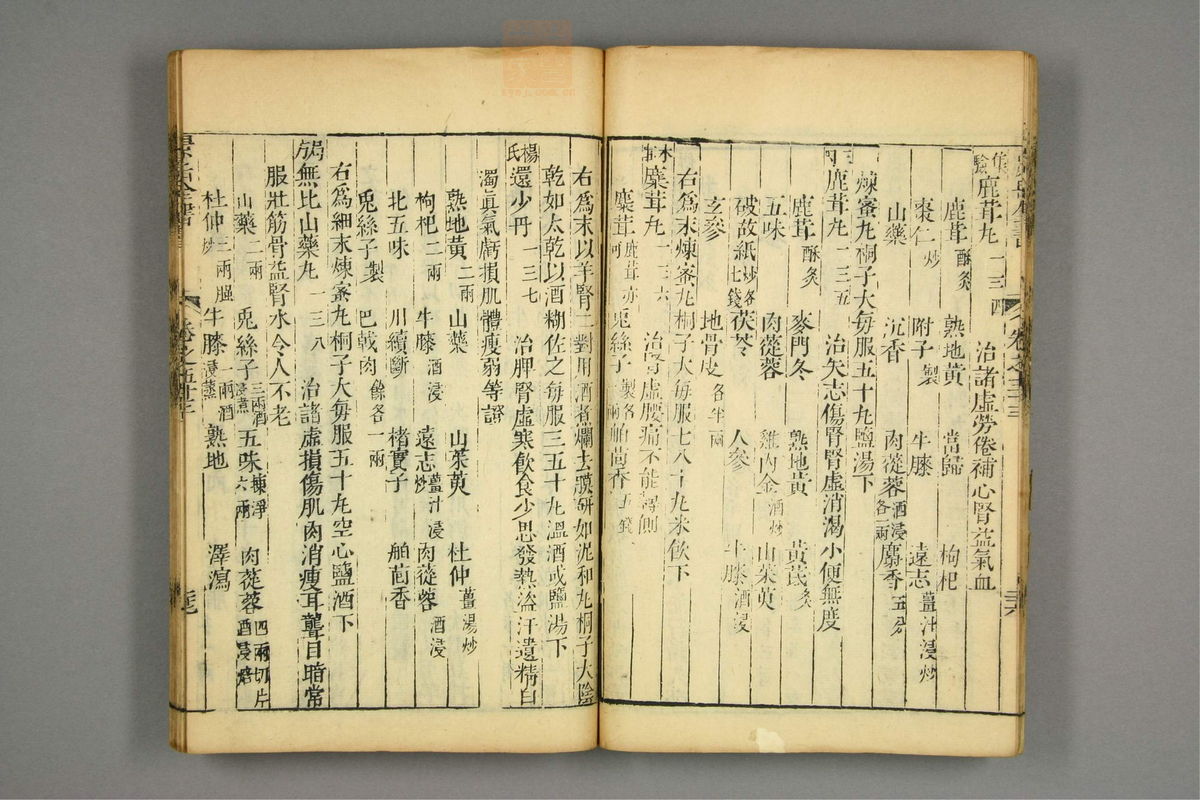 鹿茸丸 一三四 治諸虛勞倦補心腎益氣血
鹿茸 酥炙 熟地黃 當歸 枸杞
棗仁 炒 附子 製 牛膝 遠志 薑汁浸炒
山藥 沉香 肉蓯蓉 酒浸各一兩 麝香 五分
煉蜜丸桐子大每服五十丸鹽湯下
鹿茸丸 一三五 治失志傷腎腎虛消渴小便無度
鹿茸 酥炙 麥門冬 熟地黃 黃芪 炙
五味 肉蓯蓉 雞內金 酒炒 山茱萸
破故紙 炒各七錢 茯苓 人參 牛膝 酒浸
玄參 地骨皮 各半兩
右為末煉蜜丸桐子大每服七八十丸米飲下
麋茸丸 一三六 治腎虛腰痛不能轉側
麋茸 鹿茸亦可 兎絲子 製各一兩 舶茴香 五錢
右爲末以羊腎二對用酒煮爛去膜研如泥和丸桐子大陰
乾如太乾以酒糊佐之每服三五十丸溫酒或鹽湯下
楊氏還少丹 一三七 治脾腎虛寒飲食少思發熱盜汗遺精白
濁眞氣虧損肌體瘦弱等證
熟地黃 二兩 山藥 山茱萸 杜仲 薑湯炒
枸杞 二兩 牛膝 酒浸 遠志 薑汁浸炒 肉蓯蓉 酒浸
北五味 川續斷 楮實子 舶茴香
兎絲子 製 巴戟肉 餘各一兩
右爲細末煉蜜丸桐子大每服五十丸空心鹽酒下
局方無比山藥丸 一三八 治諸虛損傷肌肉消瘦耳聾目暗常
服壯筋骨益腎水令人不老
山藥 二兩 兎絲子 三兩酒浸煮 五味 揀淨六兩 肉蓯蓉 四兩切片酒浸焙
杜仲 三兩炒 牛膝 一兩酒浸蒸 熟地 澤瀉